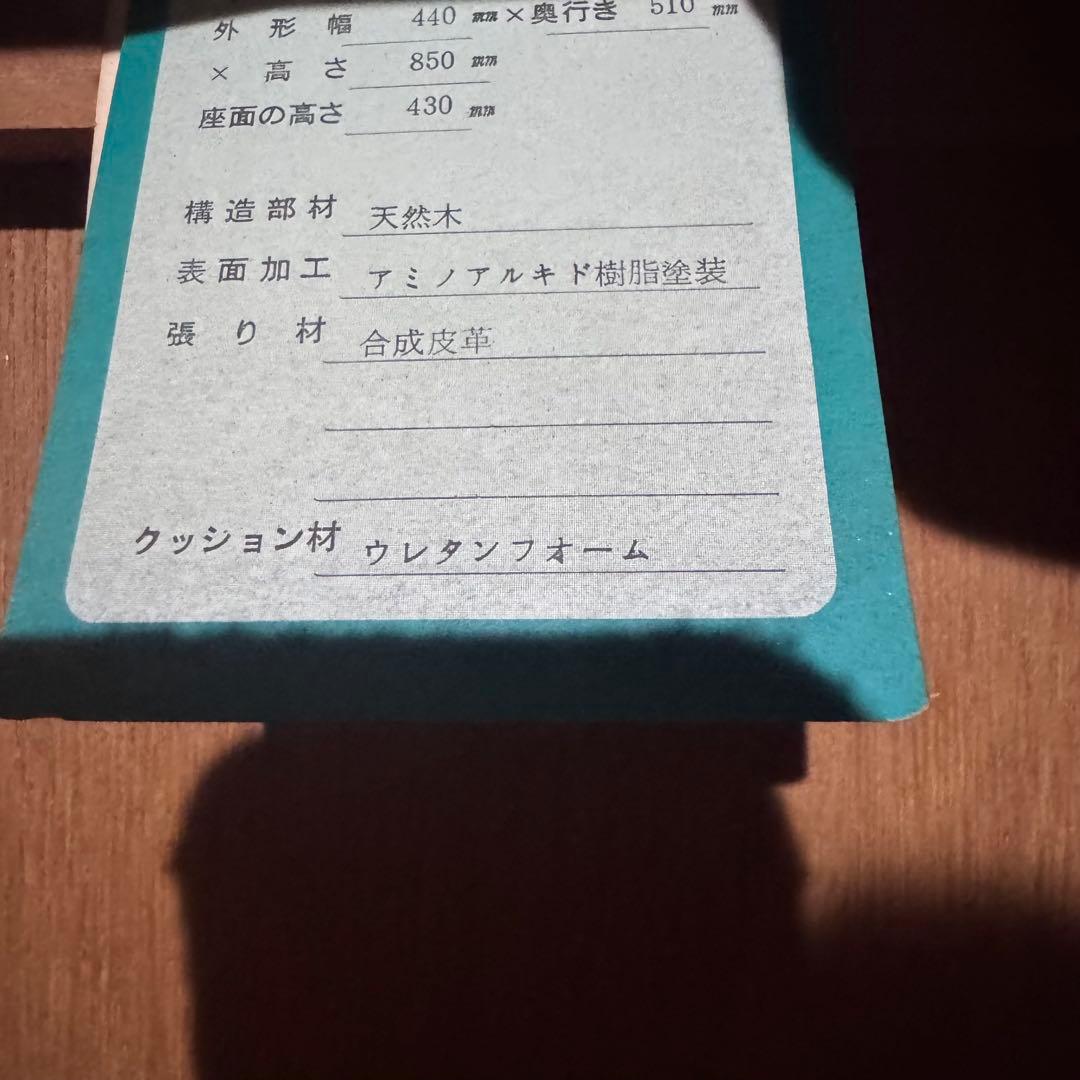 外形幅 440 mm × 奥行き 510 mm
× 高さ 850 mm
座面の高さ 430 mm
構造部材 天然木
表面加工 アミノアルキド樹脂塗装
張り材 合成皮革
クッション材 ウレタンフオーム